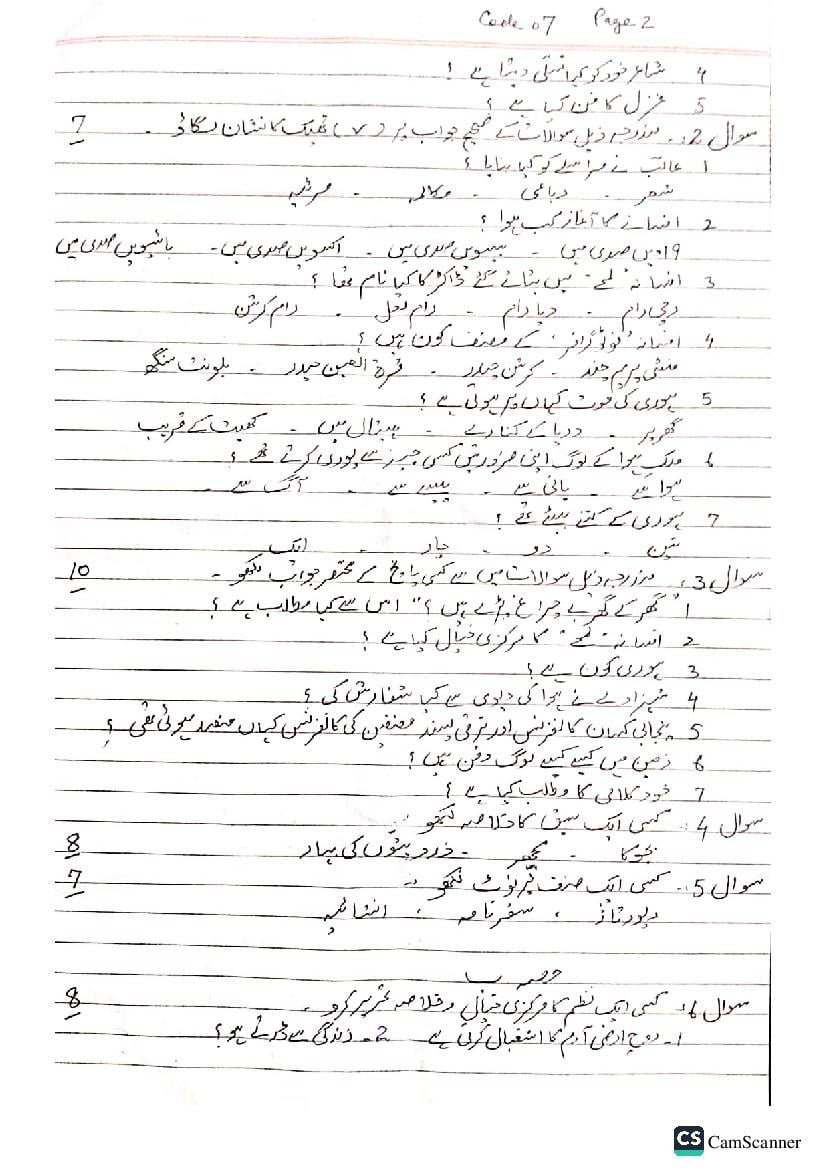 Code 07 Page 2
4 شاعر خود کو کیا تسلی دیتا ہے ؟
5 غزل کا فن کیا ہے ؟
سوال 2:۔ مندرجہ ذیل سوالات کے صحیح جواب پر (✓) ٹھیک کا نشان لگائی ۔ 7
1 غالب نے مراسلے کو کیا بنایا ؟
شعر ۔ رباعی ۔ مکالمہ ۔ مرثیہ
2 افسانے کا آغاز کب ہوا ؟
19ویں صدی میں ۔ بیسویں صدی میں ۔ اکیسویں صدی میں ۔ بائیسویں صدی میں
3 افسانہ "لمحے" میں بتائے گئے ڈاکٹر کا کیا نام تھا ؟
رام ۔ دیا رام ۔ رام لعل ۔ رام کرشن
4 افسانہ "فوٹوگرافر" کے مصنف کون ہیں ؟
منشی پریم چند ۔ کرشن چندر ۔ قرۃ العین حیدر ۔ بلونت سنگھ
5 ہوری کی موت کہاں پر ہوتی ہے ؟
گھر پر ۔ دریا کے کنارے ۔ ہسپتال میں ۔ کھیت کے قریب
6 ملک ہوا کے لوگ اپنی ضرورتیں کسی چیز سے پوری کرتے تھے ؟
ہوا سے ۔ پانی سے ۔ پیسے سے ۔ آگ سے ۔
7 ہوری کے کتنے بیٹے تھے ؟
تین ۔ دو ۔ چار ۔ ایک
سوال 3:۔ مندرجہ ذیل سوالات میں سے کسی پانچ کے مختصر جواب لکھو ۔ 10
1 "گھر کے گھر بے چراغ پڑے ہیں ؟" اس سے کیا مطلب ہے ؟
2 افسانہ "لمحے" کا مرکزی خیال کیا ہے ؟
3 ہوری کون ہے ؟
4 شہزادے نے ہوا کی دیوی سے کیا سفارش کی ؟
5 پنجابی کسان کانفرنس اور ترقی پسند مصنفین کی کانفرنس کہاں منعقد ہوئی تھی ؟
6 زمین میں کیسے کیسے لوگ دفن ہیں ؟
7 خود کلامی کا مطلب کیا ہے ؟
سوال 4:۔ کسی ایک سبق کا خلاصہ لکھو ۔
بجوکا ۔ مچھر ۔ زرد پتوں کی بہار 8
سوال 5:۔ کسی ایک صنف پر نوٹ لکھو ۔ 7
رپورتاژ ، سفرنامہ ، انشائیہ
حصہ ب
سوال 6:۔ کسی ایک نظم کا مرکزی خیال و خلاصہ تحریر کرو ۔ 8
1۔ روح ارضی آدم کا استقبال کرتی ہے 2۔ زندگی سے ڈرتے ہو ؟
CS CamScanner